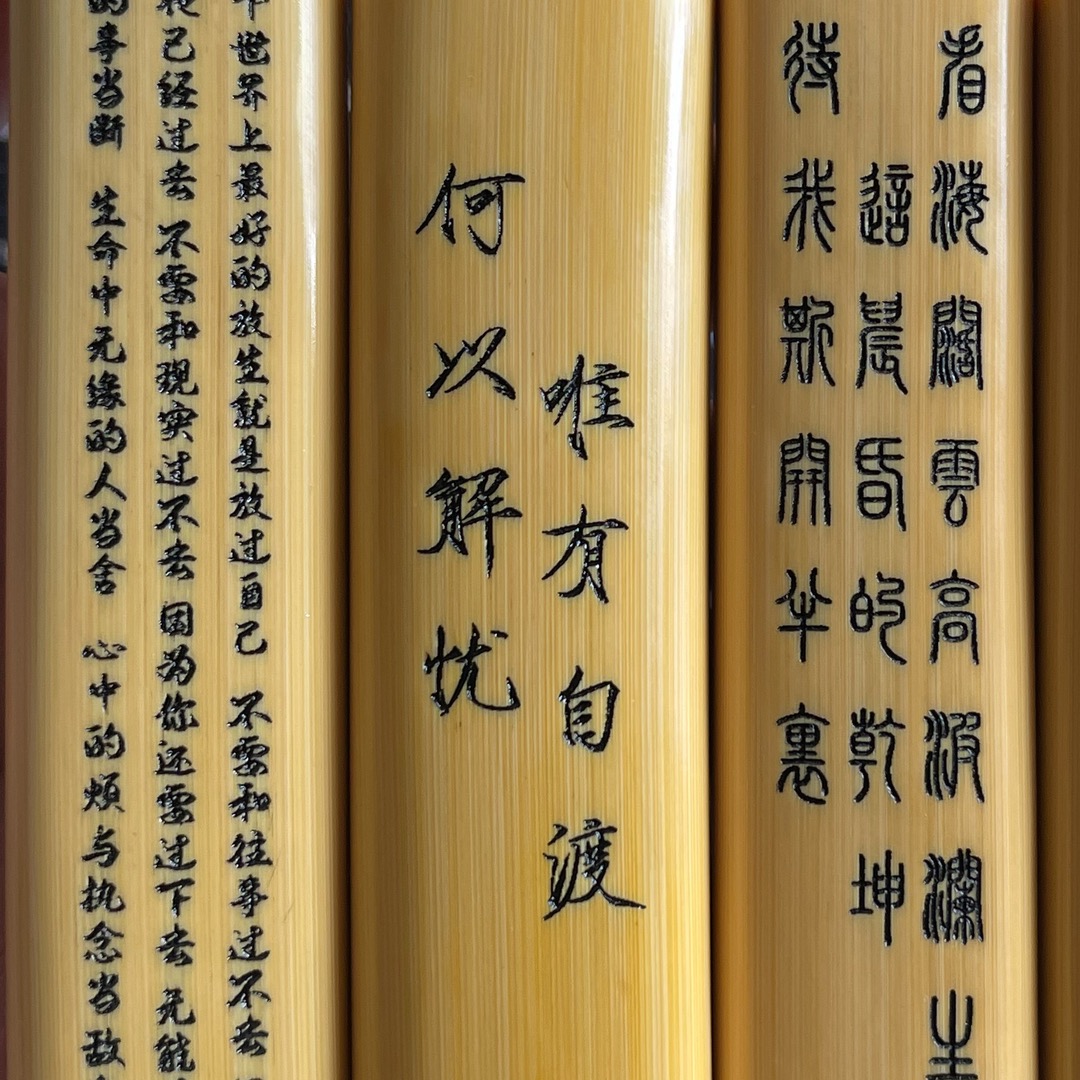 世界上最好的放生就是放过自己 不要和往事过不去
已经过去 不要和现实过不去 因为你还要过下去 无能
的事当断 生命中无缘的人当舍 心中的烦与执念当
何以解忧
唯有自渡
待我斯開半裏
這晨昏的乾坤
看海闊雲高波瀾